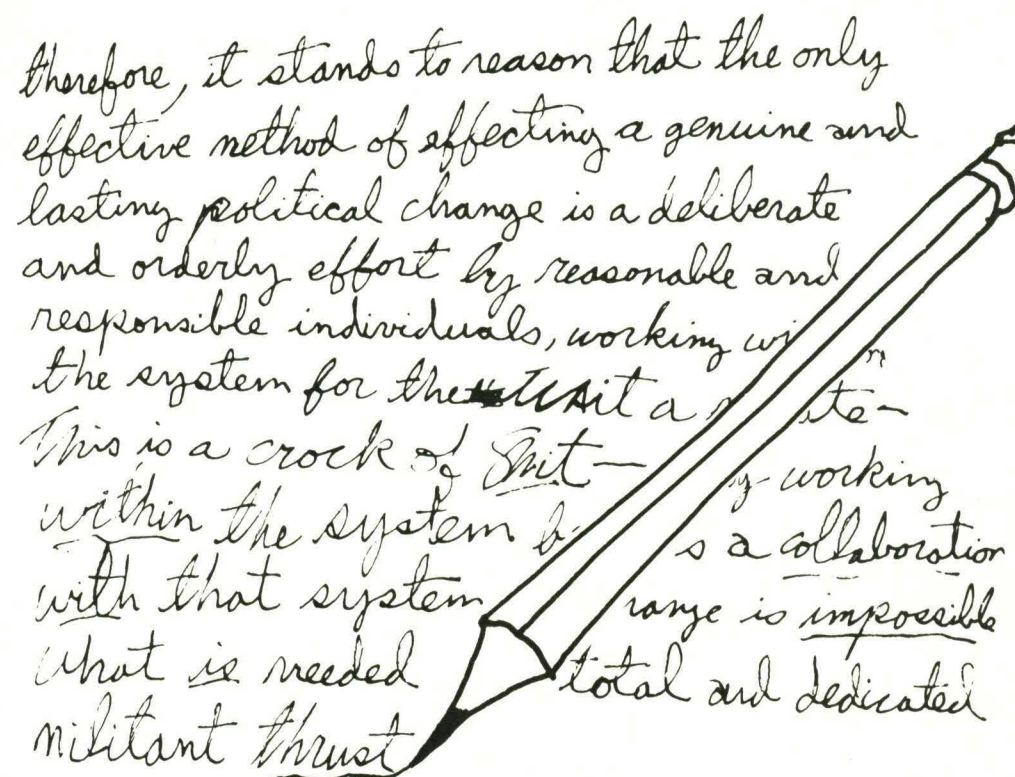 therefore, it stands to reason that the only
effective method of effecting a genuine and
lasting political change is a deliberate
and orderly effort by reasonable and
responsible individuals, working
the system for the wait a
This is a crock of Shit— working
within the system a collaboration
with that system is impossible
what is needed total and dedicated
militant thrust